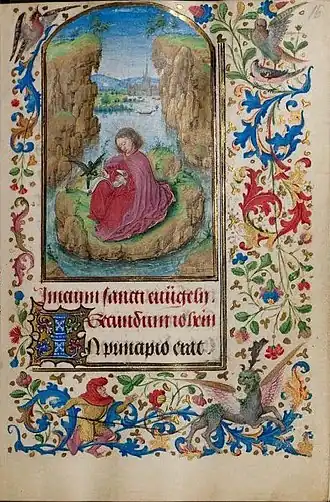 16
Inicium sancti euūgelii.
Secundum iohem
In principio erat